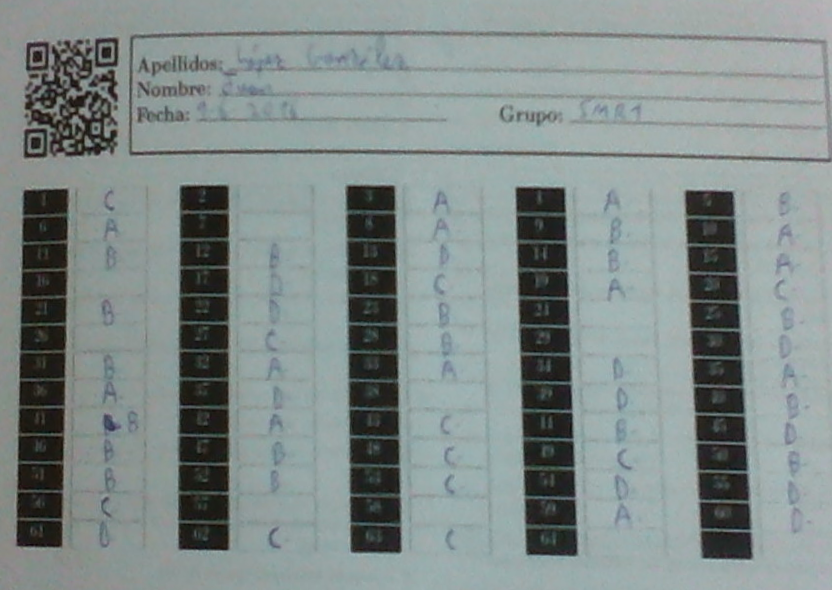 Apellidos: López González
Nombre:
Fecha: 9 6 2016 Grupo: SMR1
1 C 2 3 A 4 A 5 B
6 A 7 8 A 9 B 10 A
11 B 12 B 13 D 14 B 15 A
16 17 D 18 C 19 A 20 C
21 B 22 D 23 B 24 25 B
26 27 C 28 B 29 30 D
31 B 32 A 33 A 34 D 35 A
36 A 37 D 38 39 D 40 B
41 B 42 A 43 C 44 B 45 D
46 B 47 B 48 C 49 C 50 B
51 B 52 B 53 C 54 D 55 D
56 C 57 58 59 A 60 D
61 D 62 C 63 C 64